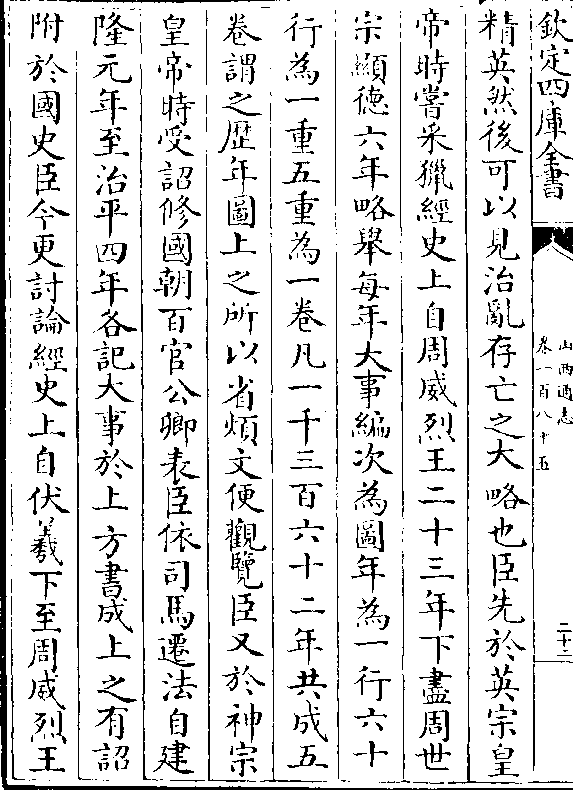 欽定四庫全書
山西通志
卷一百八十五
二十二
精英然後可以見治亂存亡之大略也臣先於英宗皇
帝時嘗采獵經史上自周威烈王二十三年下盡周世
宗顯德六年略舉每年大事編次為圖年為一行六十
行為一重五重為一卷凡一千三百六十二年共成五
卷謂之歴年圖上之所以省煩文便觀覽臣又於神宗
皇帝時受詔修國朝百官公卿表臣依司馬遷法自建
隆元年至治平四年各記大事於上方書成上之有詔
附於國史臣今更討論經史上自伏羲下至周威烈王